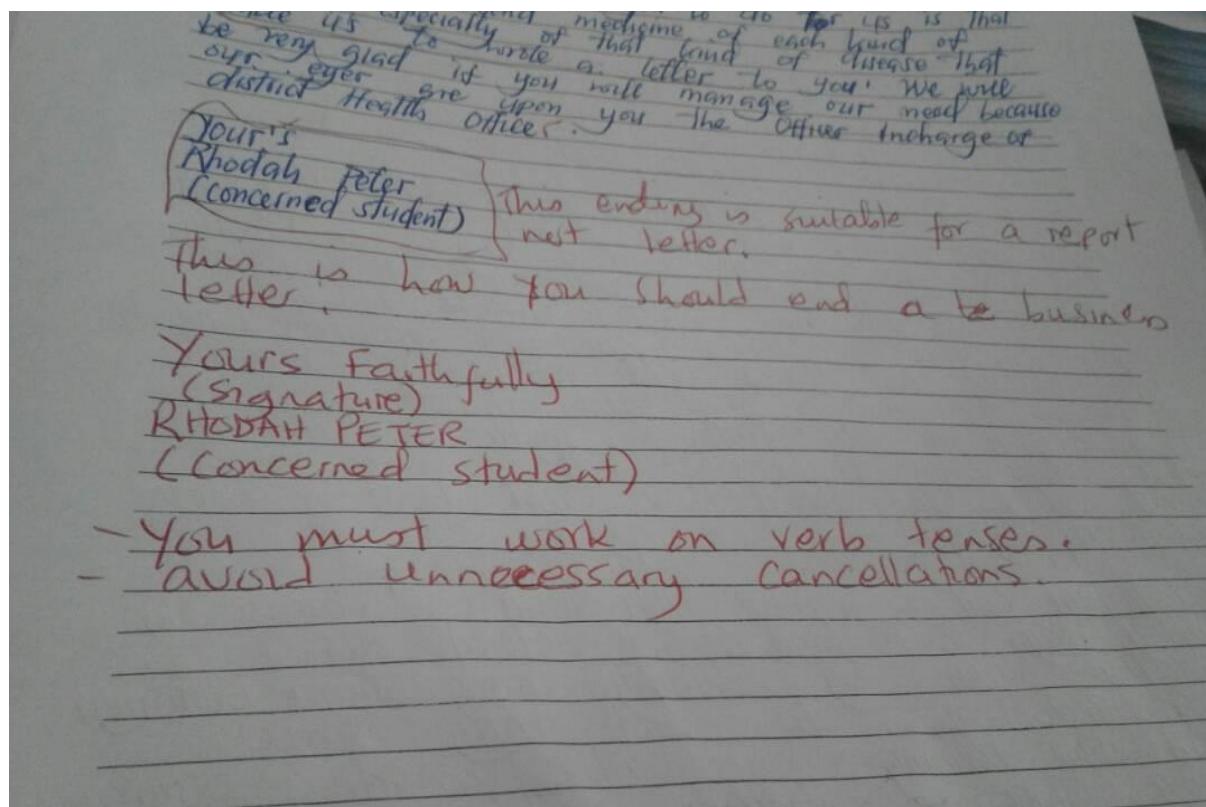 us especially medicine of each kind of
us to wrote a letter to you. We will
be very glad if you will manage our need because
our eyes are upon you the Officer Incharge or
district Health Officer.
Your's
Rhodah Peter
(concerned student)
This ending is suitable for a report
not letter.
This is how you should end a be business
letter.
Yours Faithfully
(Signature)
RHODAH PETER
(Concerned student)
- You must work on verb tenses.
- avoid unnecessary cancellations.